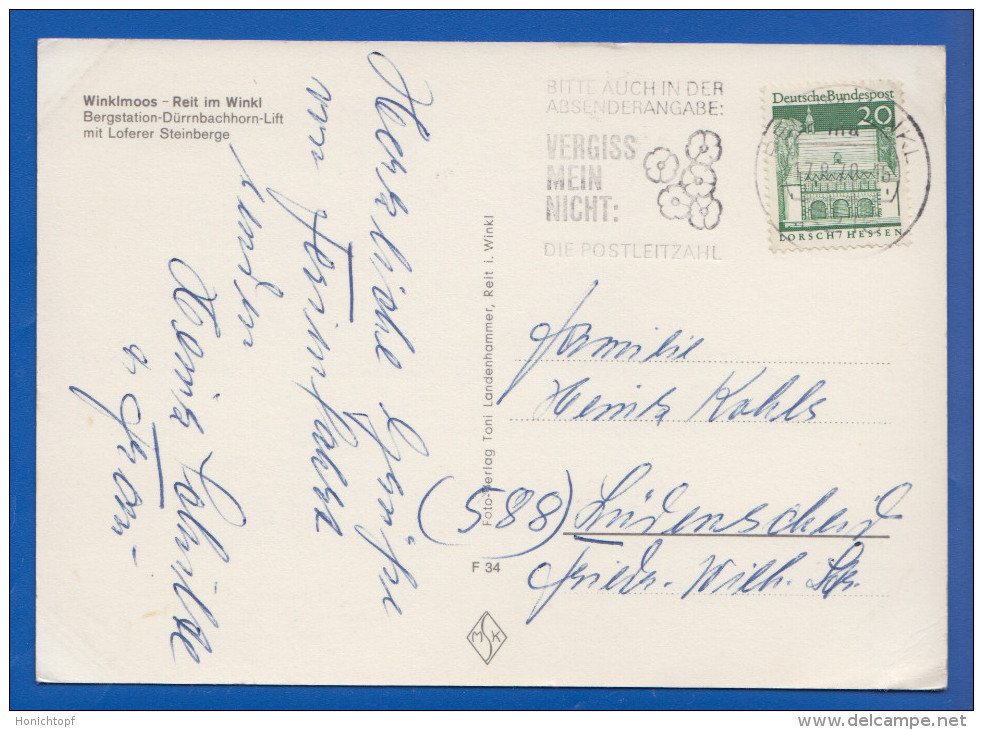 Winklmoos - Reit im Winkl
Bergstation-Dürrnbachhorn-Lift
mit Loferer Steinberge
Herzliche Grüße
von
senden
Heinz
u. Frau
Foto-Verlag Toni Landenhammer, Reit i. Winkl
F 34
MSK
BITTE AUCH IN DER
ABSENDERANGABE:
VERGISS
MEIN
NICHT:
DIE POSTLEITZAHL
Deutsche Bundespost
20
LORSCH / HESSEN
Familie
Heinz Kahls
(588) Lüdenscheid
Friedr. Wilh. Str.
Honichtopf
www.delcampe.net